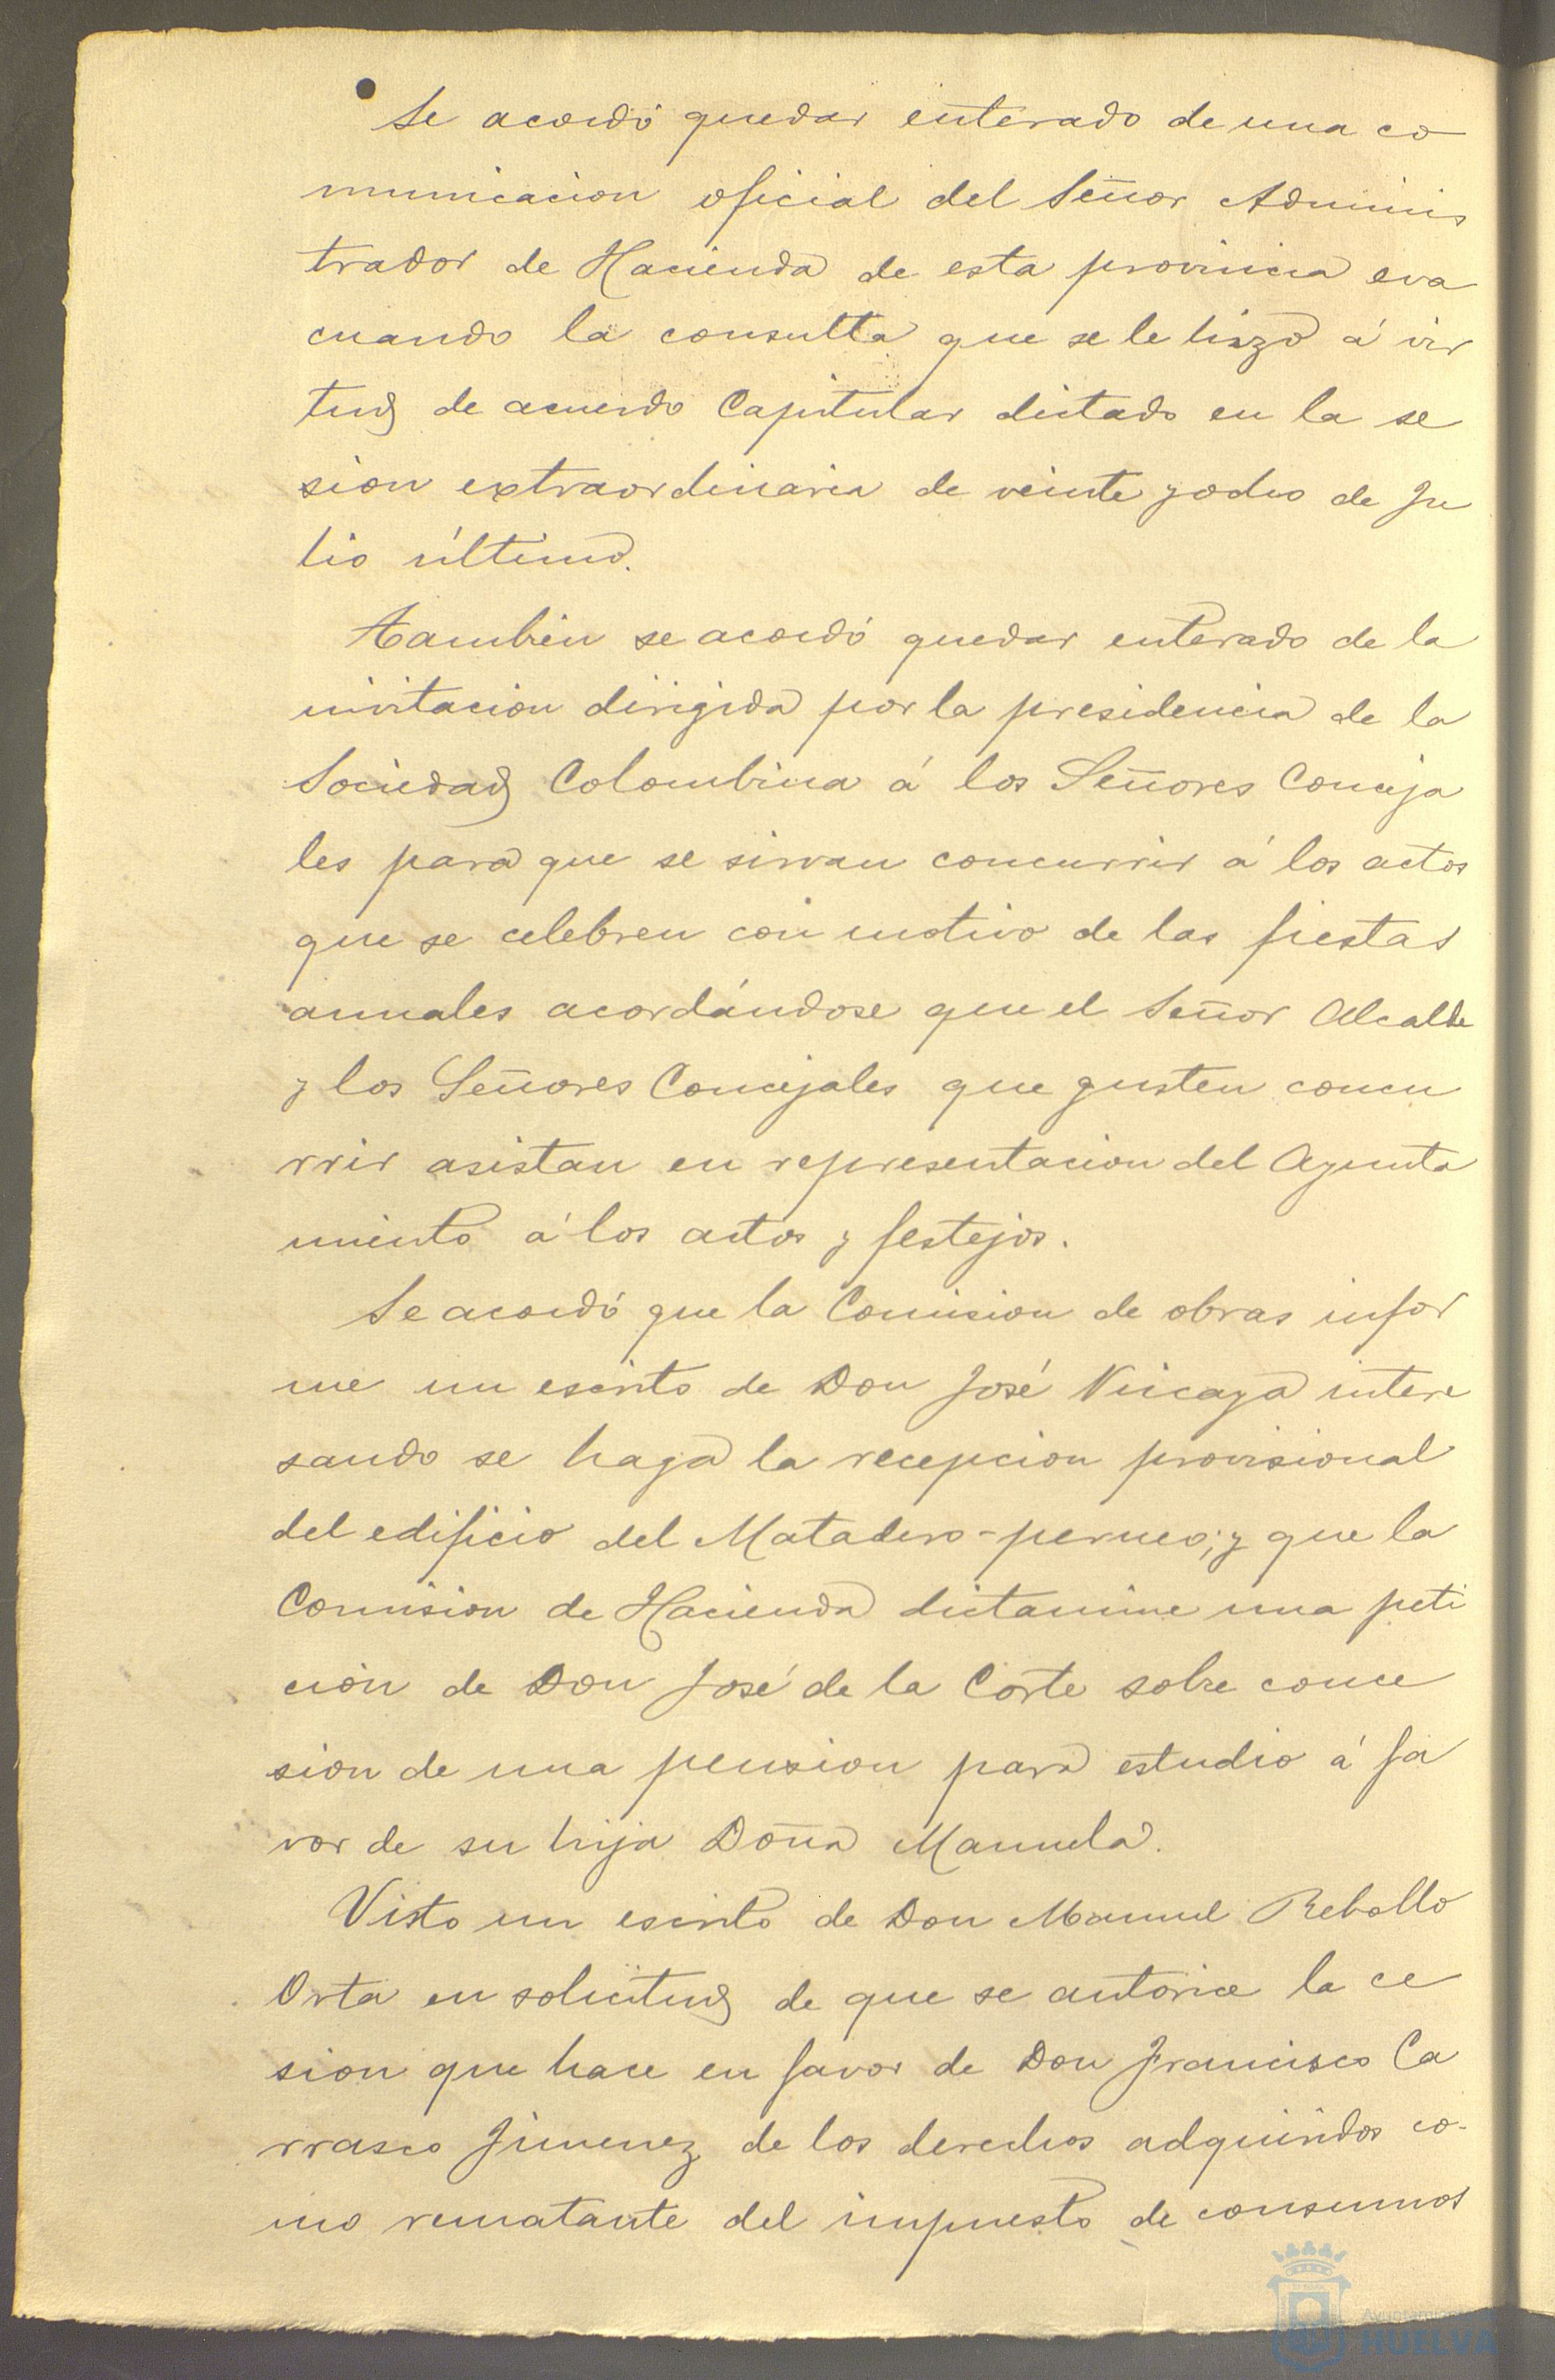 Se acordó quedar enterado de una co
municacion oficial del Señor Adminis
trador de Hacienda de esta provincia eva
cuando la consulta que se le hizo á vir
tud de acuerdo Capitular dictado en la se
sion extraordinaria de veinte y ocho de Ju
lio último.
Tambien se acordó quedar enterado de la
invitacion dirigida por la presidencia de la
Sociedad Colombina á los Señores Conceja
les para que se sirvan concurrir á los actos
que se celebren con motivo de las fiestas
anuales acordándose que el Señor Alcalde
y los Señores Concejales que gusten concu
rrir asistan en representacion del Ayunta
miento á los actos y festejos.
Se acordó que la Comision de obras infor
me un escrito de Don José Vizcaya intere
sando se haga la recepcion provisional
del edificio del Matadero-perneo; y que la
Comision de Hacienda dictamine una peti
ción de Don José de la Corte sobre conce
sion de una pension para estudio á fa
vor de su hija Doña Manuela.
Visto un escrito de Don Manuel Rebollo
Orta en solicitud de que se autorice la ce
sion que hace en favor de Don Francisco Ca
rrasco Jimenez de los derechos adquiridos co-
mo rematante del impuesto de consumos
HUELVA